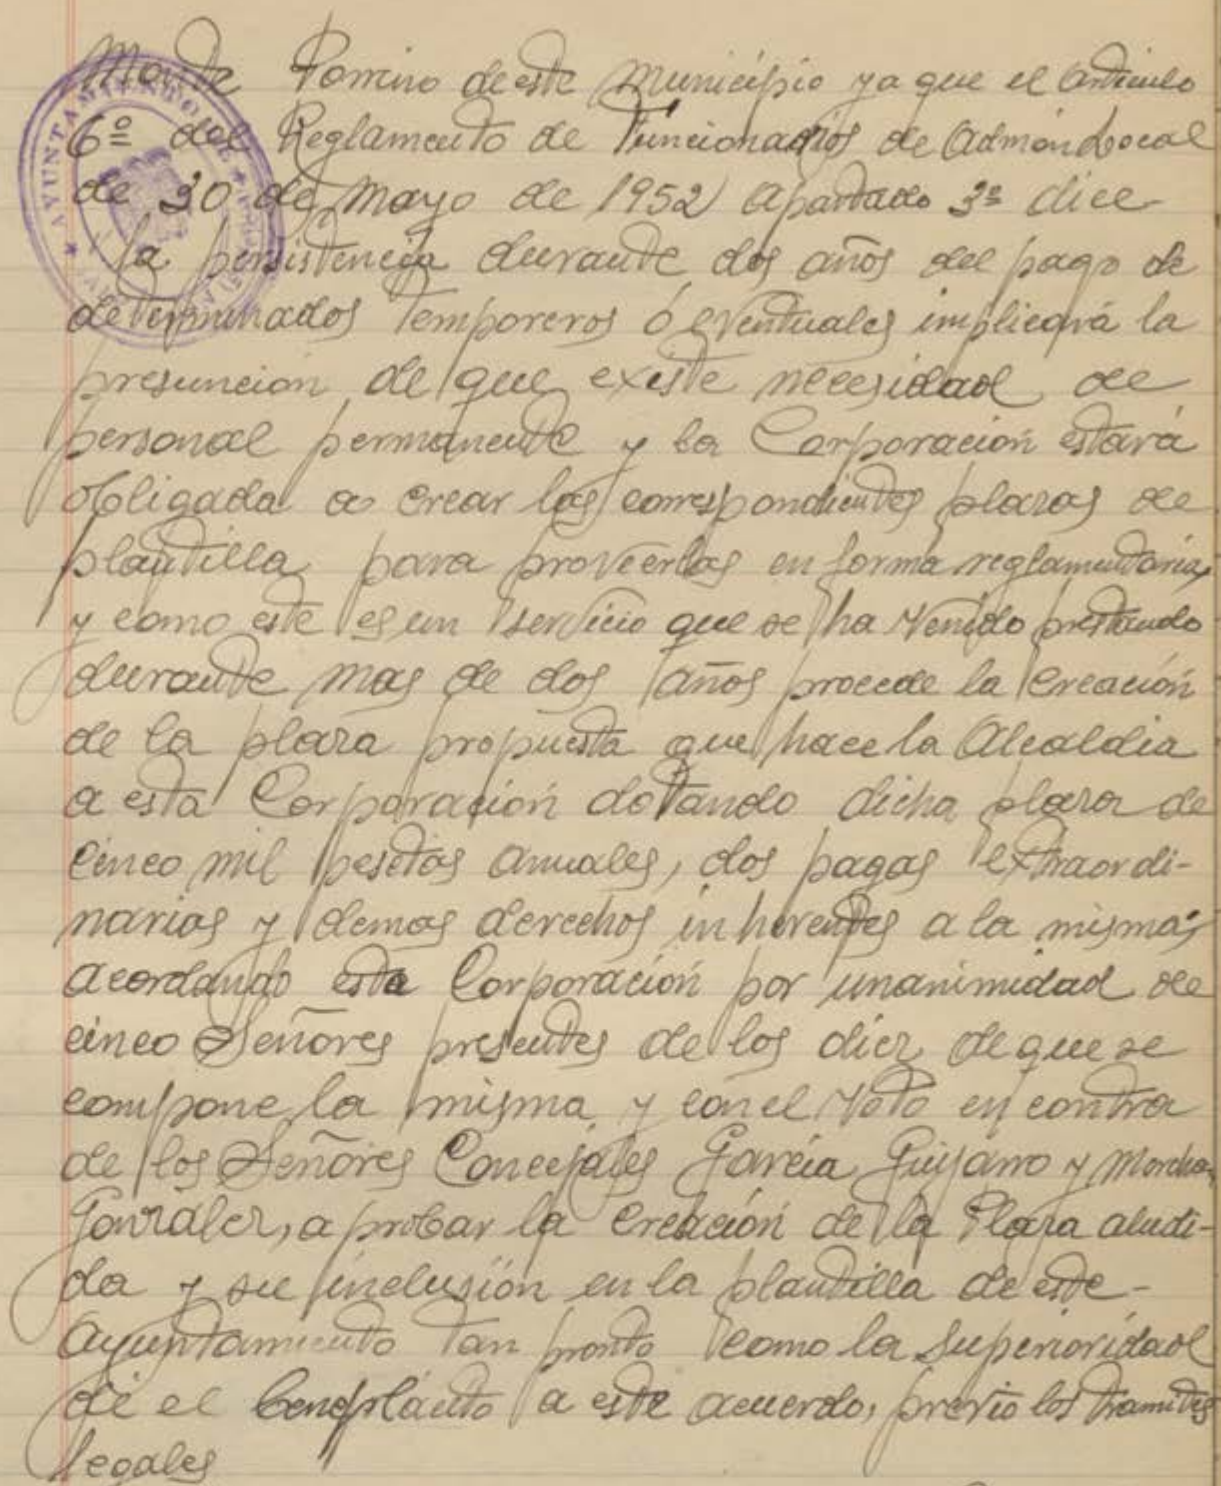 Monte Romino de este Municipio ya que el articulo
6º del Reglamento de Funcionarios de Admón Local
de 30 de Mayo de 1952 apartado 3º dice
la persistencia durante dos años del pago de
determinados temporeros ó eventuales implicará la
presunción de que existe necesidad de
personal permanente y la Corporación estará
obligada a crear las correspondientes plazas de
plantilla para proveerlas en forma reglamentaria,
y como este es un servicio que se ha venido prestando
durante mas de dos años procede la creación
de la plaza propuesta que hace la Alcaldia
a esta Corporación dotando dicha plaza de
cinco mil pesetas anuales, dos pagas extraordi-
narias y demas derechos inherentes a la misma;
acordando esta Corporación por unanimidad de
cinco Señores presentes de los diez de que se
compone la misma y con el voto en contra
de los Señores Concejales García Guijarro y
González, aprobar la creación de la Plaza aludi-
da y su inclusión en la plantilla de este-
Ayuntamiento tan pronto como la Superioridad
dé el beneplácito a este acuerdo, previo los tramites
legales
AYUNTAMIENTO DE